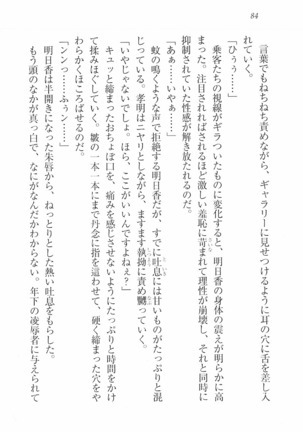 84
言葉でもねちねち責めながら、ギャラリーに見せつけるように耳の穴に舌を差し入
れていく。
「ひぅぅ……」
乗客たちの視線がギラついたものに変化すると、明日香の身体の震えが明らかに高
まった。注目されればされるほど激しい羞恥に苛まれて理性が崩壊し、それと同時に
抑制されていた性感が解き放たれるのだ。
「あぁ……いやぁ……」
蚊の鳴くような声で拒絶する明日香だが、すでに吐息には甘いものがたっぷりと混
じっている。孝明はニヤリとしながら、ますます執拗に責め嬲っていく。
「いやじゃないでしょ。ほら、ここがいいんですよねぇ？」
キュッと締まったおちょぼ口を、痛みを感じさせないようにたっぷりと時間をかけ
て揉みほぐしていく。皺の一本一本にまで丹念に指を這わせて、硬く締まった穴をや
わらかくほころばせるのだ。
「ンンっ……ふぅン……」
明日香は半開きになった朱唇から、ねっとりとした熱い吐息をもらした。
もう頭のなかが真っ白で、なにがなんだかわからない。年下の凌辱者に与えられて